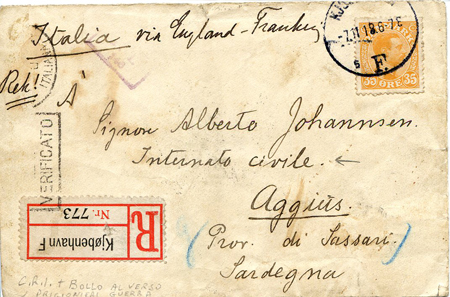 Italia via England-Frankrig
Rek!
KJØB
-7.11.18.6-7E
F.
35 ØRE 35
ITALIANA
VERIFICATO
A
Signore Alberto Johannsen.
Internato civile.
Aggius
(Prov. di Sassari)
Sardegna
R
Kjøbenhavn F
Nr. 773
C.R.I. + BOLLO AL VERSO
PRIGIONIERI GUERRA